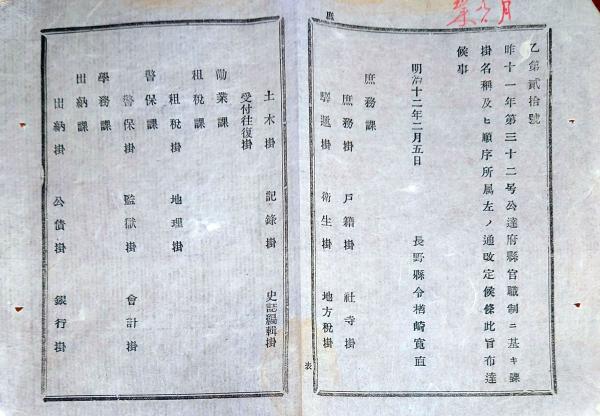 乙第貳拾號
昨十一年第三十二号公達府縣官職制ニ基キ課
掛名稱及ヒ順序所属左ノ通改定候條此旨布達
候事
明治十二年二月五日　長野縣令楢崎寛直
庶務課
庶務掛　戸籍掛　社寺掛
驛逓掛　衛生掛　地方税掛
土木掛　記録掛　史誌編輯掛
受付往復掛
勧業課
租税課
租税掛　地理掛
警保課
警保掛　監獄掛　會計掛
學務課
出納課
出納掛　公債掛　銀行掛
表